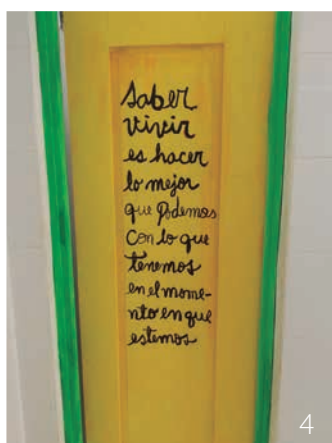 saber
vivir
es hacer
lo mejor
que podemos
con lo que
tenemos
en el mome-
nto en que
estemos
4